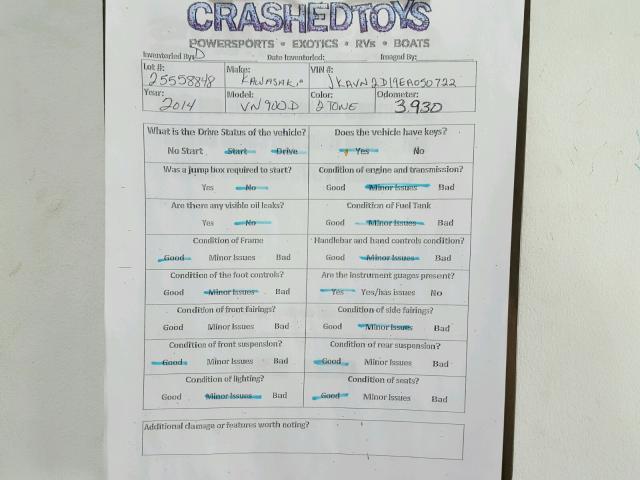 CRASHEDTOYS
POWERSPORTS • EXOTICS • RVs • BOATS
Inventoried By: D Date Inventoried: Imaged By:
Lot #: 25558848 Make: KAWASAKI VIN #: JKAVN2D19EA050722
Year: 2014 Model: VN900D Color: 2 TONE Odometer: 3,930
What is the Drive Status of the vehicle? Does the vehicle have keys?
No Start Start Drive Yes No
Was a jump box required to start? Condition of engine and transmission?
Yes No Good Minor Issues Bad
Are there any visible oil leaks? Condition of Fuel Tank
Yes No Good Minor Issues Bad
Condition of Frame Handlebar and hand controls condition?
Good Minor Issues Bad Good Minor Issues Bad
Condition of the foot controls? Are the instrument guages present?
Good Minor Issues Bad Yes Yes/has issues No
Condition of front fairings? Condition of side fairings?
Good Minor Issues Bad Good Minor Issues Bad
Condition of front suspension? Condition of rear suspension?
Good Minor Issues Bad Good Minor Issues Bad
Condition of lighting? Condition of seats?
Good Minor Issues Bad Good Minor Issues Bad
Additional damage or features worth noting?